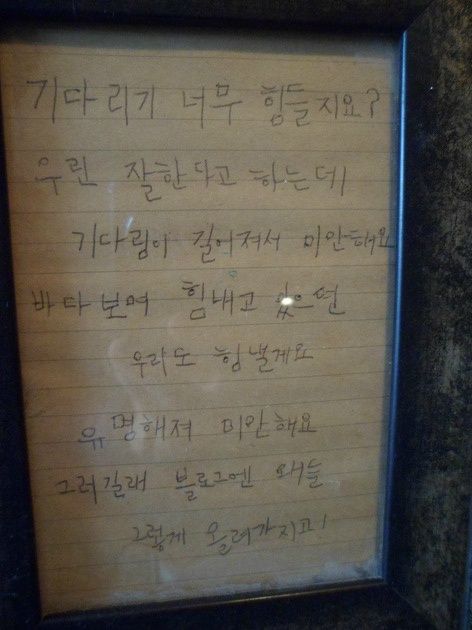 기다리기 너무 힘들지요?
우린 잘한다고 하는데
기다림이 길어져서 미안해요
바다보며 힘내고 있으면
우리도 힘낼게요
유명해져 미안해요
그러길래 블로그엔 왜들
그렇게 올려가지고!